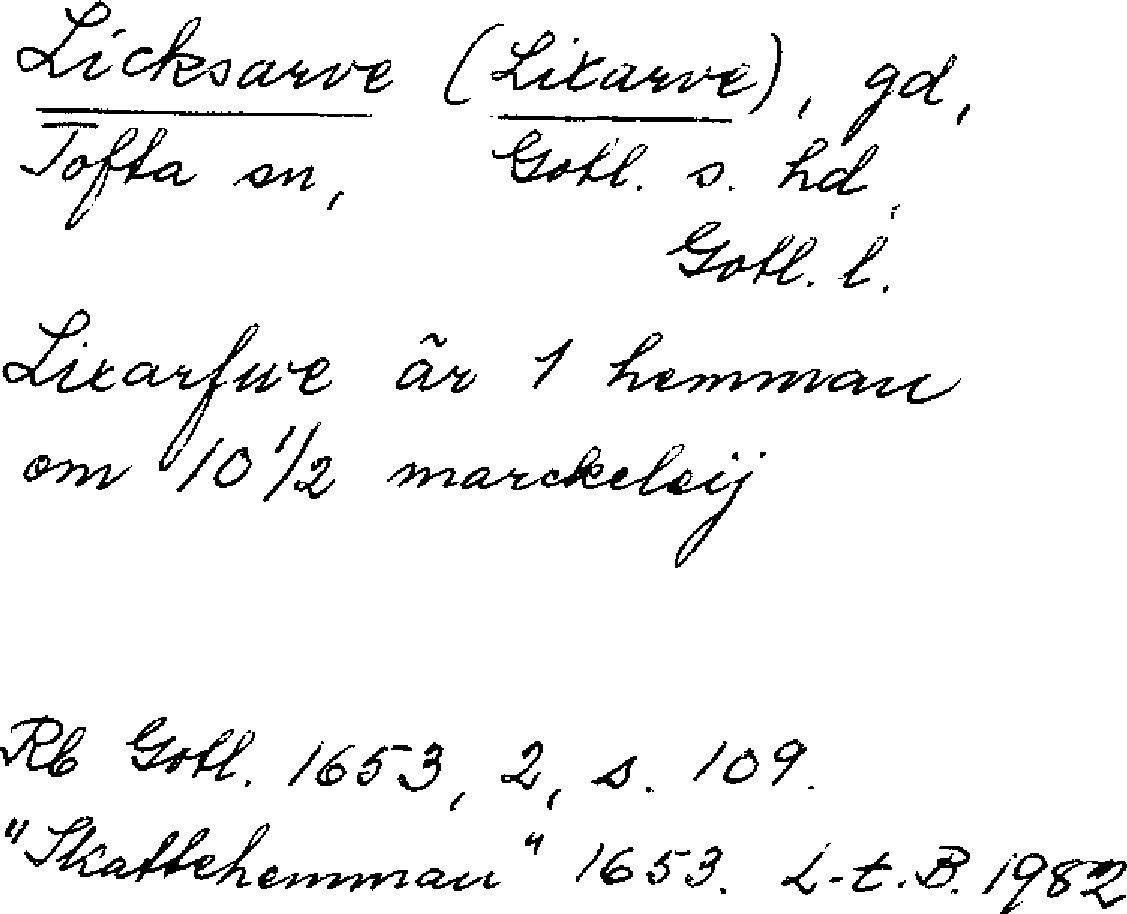 Licksarve (Lixarve), gd,
Tofta sn, Gotl. s. hd,
Gotl. l.
Lixarfwe är 1 hemman
om 10 1/2 marckeleij
Rb Gotl. 1653, 2, s. 109.
"Skattehemman" 1653. L-t.B. 1982